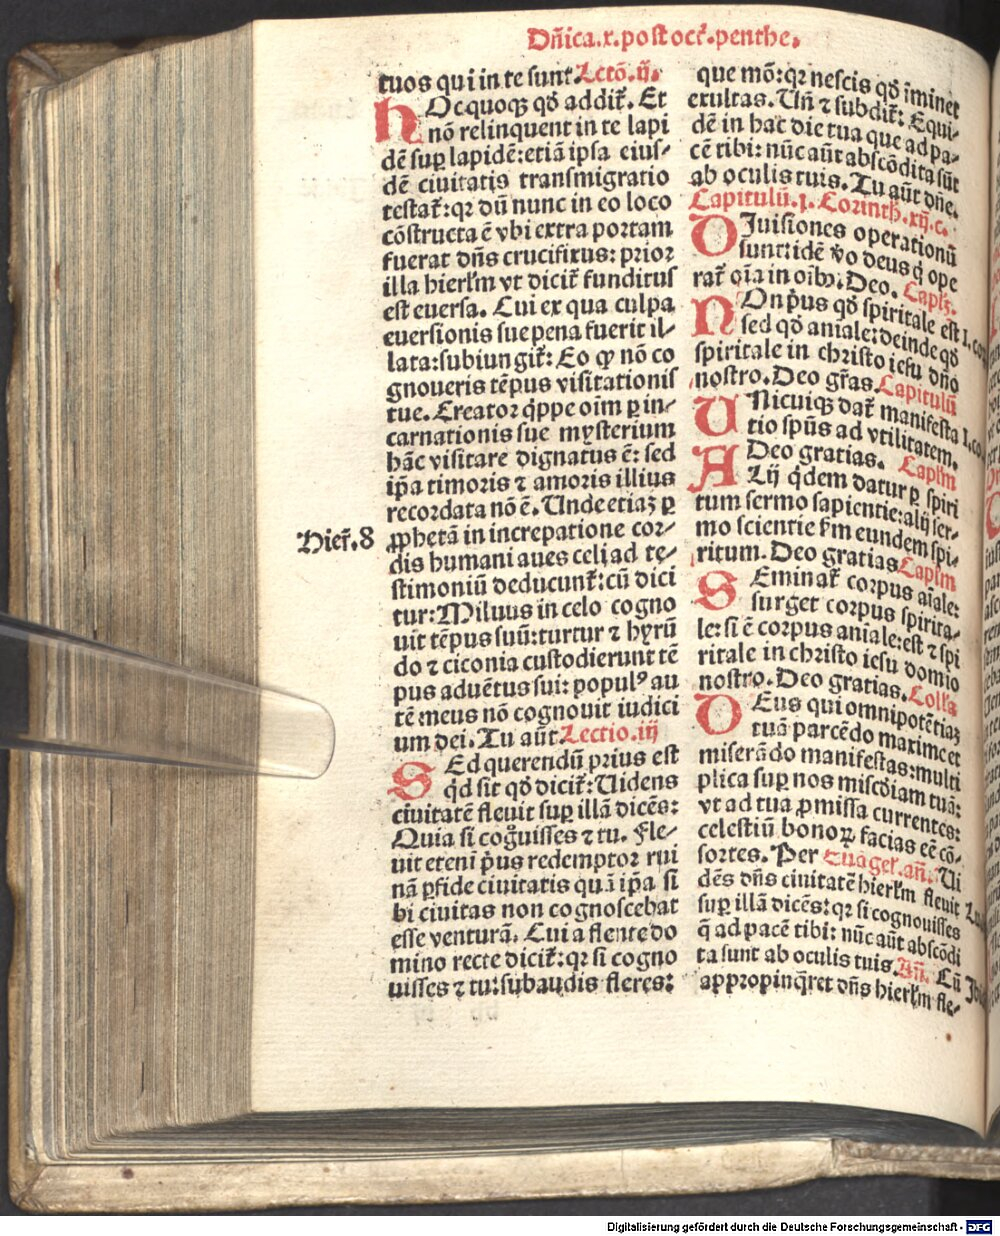 Dñica.x.post oct̃.penthe.
tuos qui in te sunt. Lectō.ij.
HOcquoqꝫ qđ addit̃. Et
nō relinquent in te lapi
dē suꝑ lapidē: etiā ipsa eius-
dē ciuitatis transmigratio
testat̃: qꝛ dū nunc in eo loco
cōstructa ē vbi extra portam
fuerat dñs crucifixus: prior
illa hierłm vt dicit̃ funditus
est euersa. Cui ex qua culpa
euersionis sue pena fuerit il-
lata: subiungit̃: Eo ꝙ nō co
gnoueris tēpus visitationis
tue. Creator q̇ppe oīm ꝑ in-
carnationis sue mysterium
hāc visitare dignatus ē: sed
ip̄a timoris ⁊ amoris illius
recordata nō ē. Unde etiaꝫ ꝑ
ꝓphetā in increpatione cor-
Hier̃.8
dis humani aues celi ad te-
stimoniū deducunt̃: cū dici
tur: Miluus in celo cogno
uit tēpus suū: turtur ⁊ hyrū
do ⁊ ciconia custodierunt tē
pus aduētus sui: populꝰ au
tē meus nō cognouit iudici
um dei. Tu aūt Lectio.iij
SEd querendū prius est
q̇d sit qđ dicit̃: Uidens
ciuitatē fleuit suꝑ illā dicēs:
Quia si cog̃uisses ⁊ tu. Fle-
uit etenī p̄us redemptor rui
nā ꝑfide ciuitatis quā ip̄a si
bi ciuitas non cognoscebat
esse venturā. Cui a flente do
mino recte dicit̃: qꝛ si cogno
uisses ⁊ tu: subaudis fleres:
que mō: qꝛ nescis qđ īminet
exultas. Uñ ⁊ subdit̃: Equi-
dē in hac die tua que ad pa-
cē tibi: nūc aūt abscōdita sūt
ab oculis tuis. Tu aūt dñe.
Capitulū.j. Corinth.xij.c.
DIuisiones operationū
sunt: idē v̊o deus q̇ ope
rat̃ oīa in oībꝫ. Deo. Caplꝫ.
NOn p̄us qđ spiritale est I.co
sed qđ aniale: deinde qđ
spiritale in christo iesu dño
nostro. Deo gr̄as. Capitulū
UNicuiqꝫ dat̃ manifesta I.co
tio spūs ad vtilitatem.
Deo gratias. Caplm
ALij q̇dem datur ꝑ spiri
tum sermo sapientie: alij ser-
mo scientie ẜm eundem spi-
ritum. Deo gratias Caplm
SEminat̃ corpus aīale:
surget corpus spirita-
le: si ē corpus aniale: est ⁊ spi
ritale in christo iesu domio
nostro. Deo gratias. Coll̃a
DEus qui omnipotētiaꝫ
tuā parcēdo maxime et
miserādo manifestas: multi
plica suꝑ nos misc̄diam tuā:
vt ad tua ꝓmissa currentes:
celestiū bonoꝝ facias eē cō-
sortes. Per Euāgel̃.añ. Ui
dēs dñs ciuitatē hierłm fleuit
suꝑ illā dicēs: qꝛ si cognouisses
q̄ ad pacē tibi: nūc aūt abscōdi
ta sunt ab oculis tuis. Añ. Cū
appropinq̄ret dñs hierłm fle-
Digitalisierung gefördert durch die Deutsche Forschungsgemeinschaft - DFG